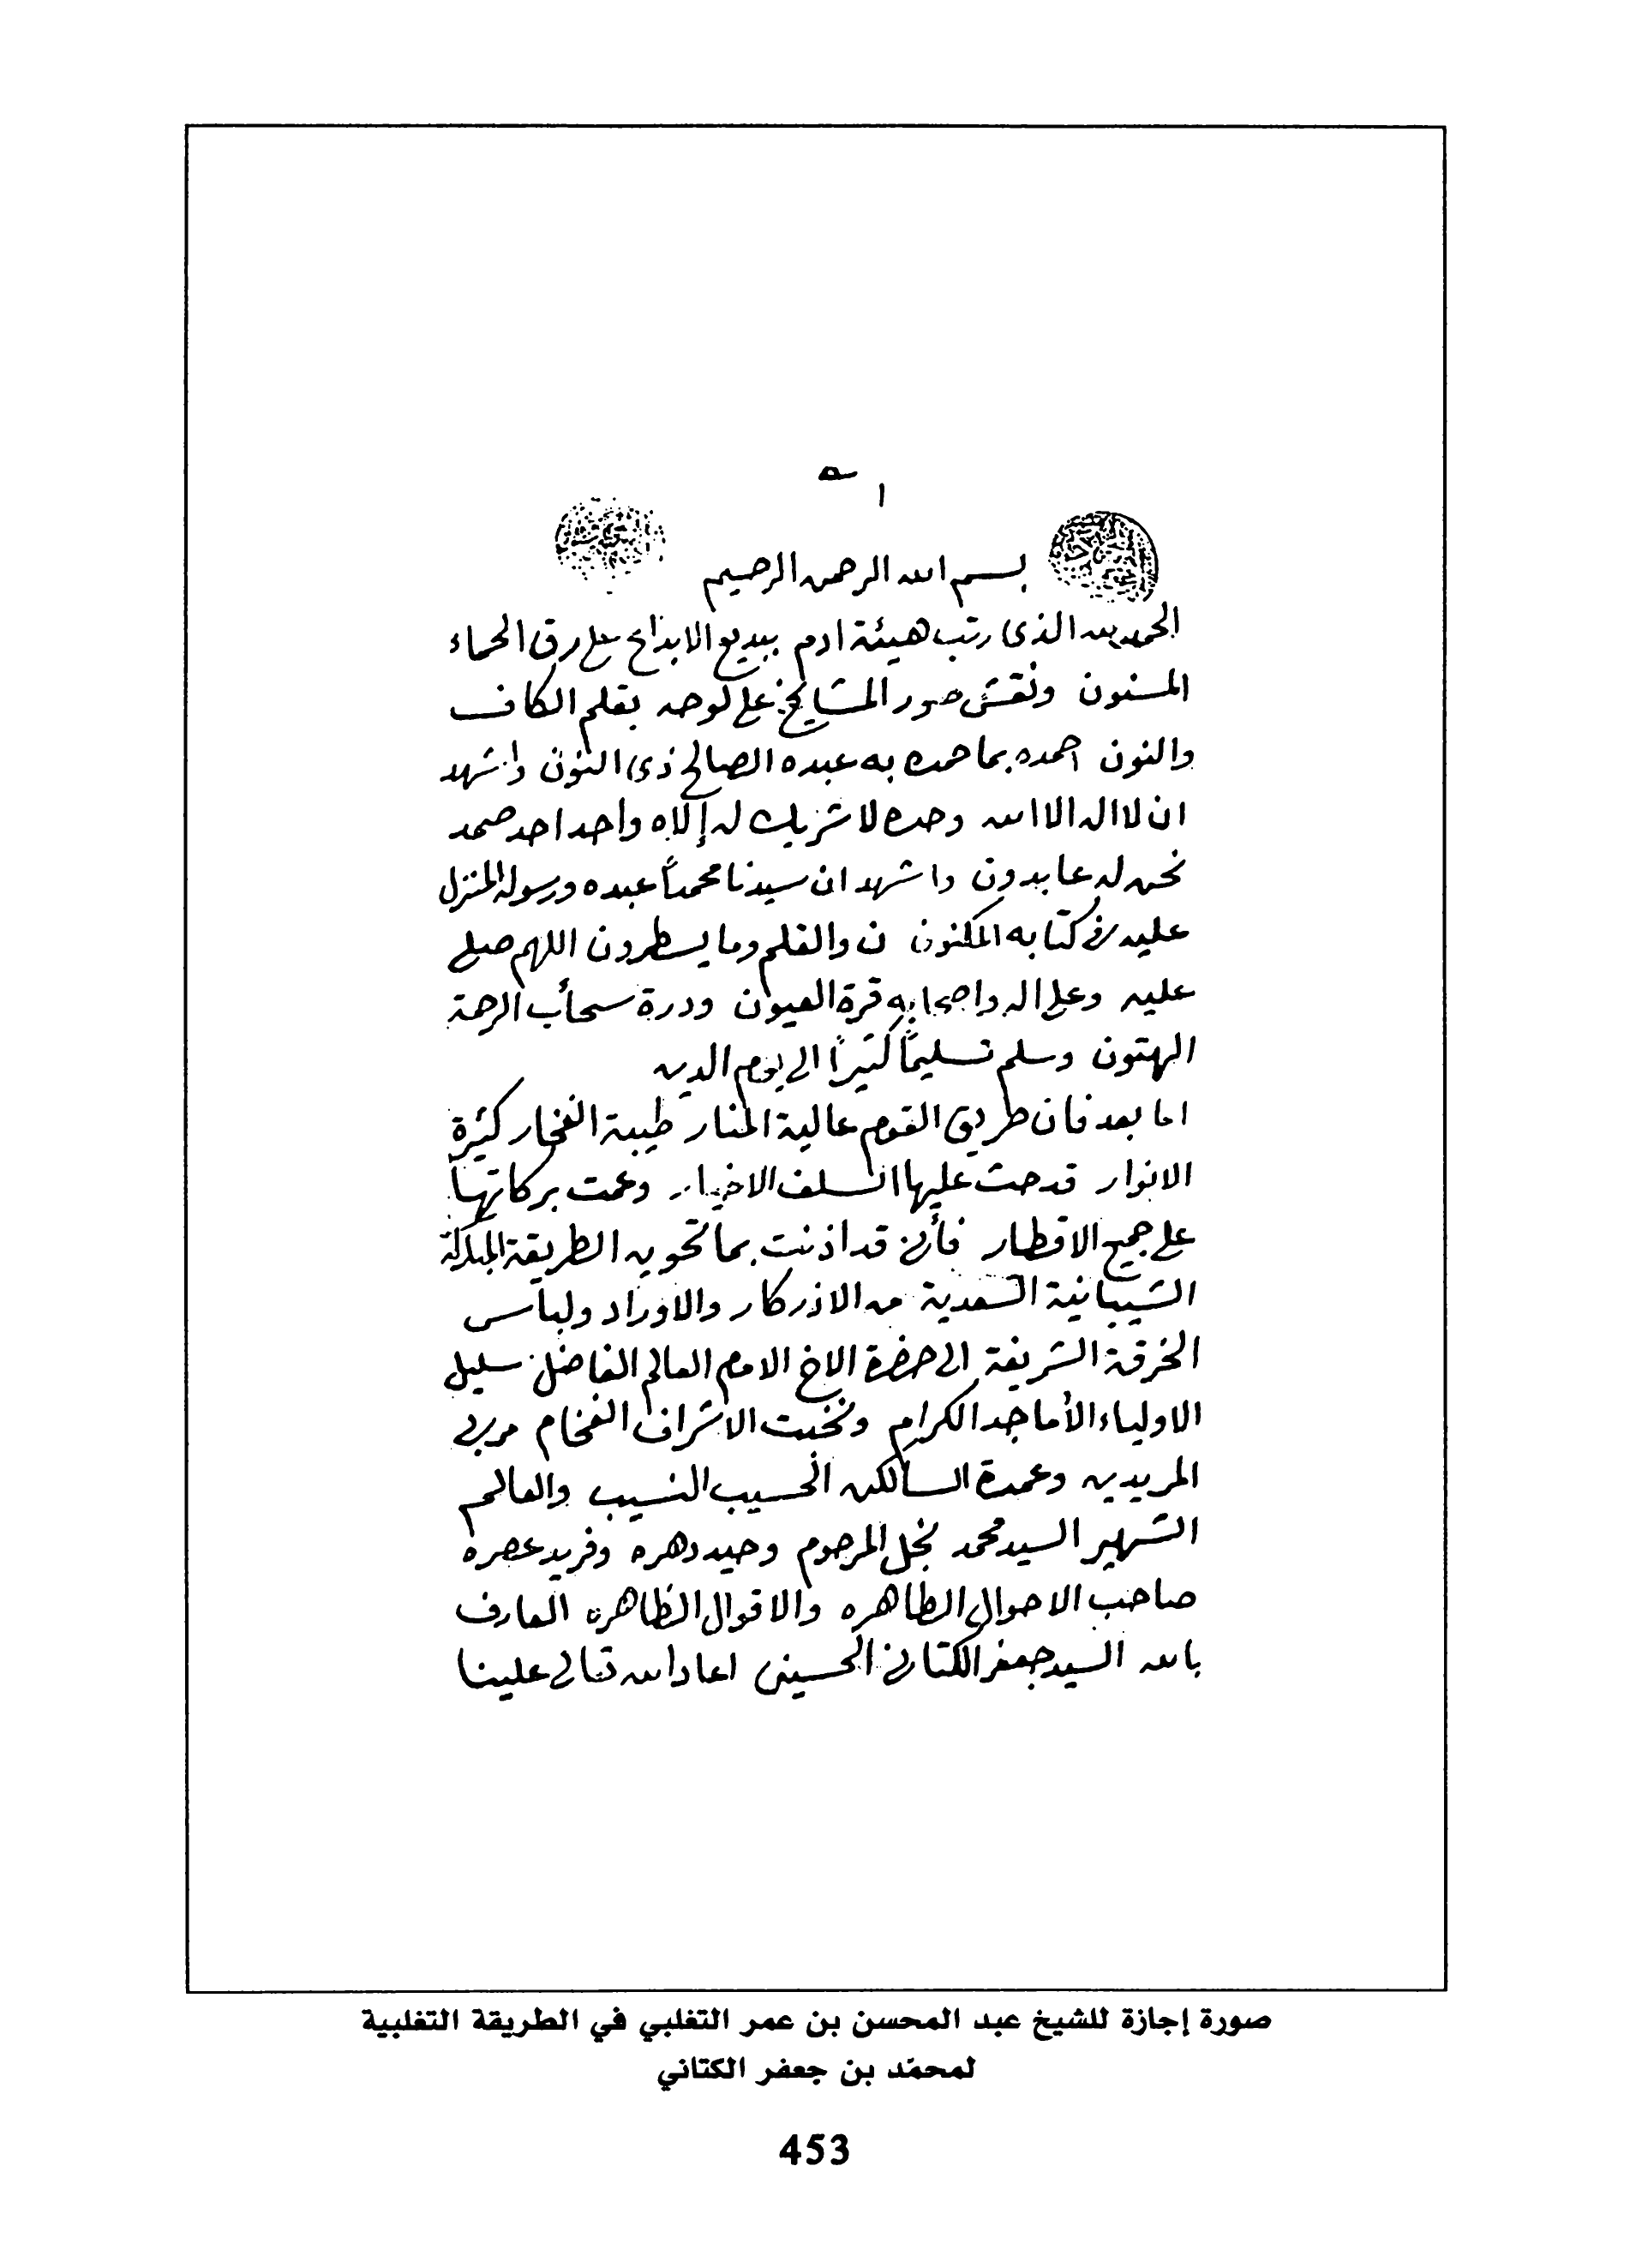 بسم الله الرحمن الرحيم
الحمد لله الذى رتب هيئة ادم ببديع الابداع على رق الحماء
المسنون ونقش صور المشايخ على لوحه بقلم الكاف
والنون احمده بما حمده به عبده الصالح ذى النون واشهد
ان لا اله الا الله وحده لا شريك له إلاه واحد احد صمد
نحن له عابدون واشهد ان سيدنا محمداً عبده ورسوله المنزل
عليه فى كتابه المكنون ن والقلم وما يسطرون اللهم صلى
عليه وعلى اله واصحابه قرة العيون ودرة سحائب الرحمة
الهتون وسلم تسليماً كثيراً الى يوم الدين
اما بعد فان طريق القوم عالية المنار طيبة الفخار كثيرة
الانوار قد حث عليها السلف الاخيار وعمت بركاتها
على جميع الاقطار فأنى قد اذنت بما تحويه الطريقة المباركة
الشيبانية السعدية من الاذركار والاوراد ولباس
الخرقة الشريفة الى حضرة الاخ الامام العالم الفاضل سليل
الاولياء الأماجد الكرام ونخبت الاشراف الفخام مربى
المريدين وعمدة السالكين الحسيب النسيب والعالم
الشهير السيد محمد نجل المرحوم وحيد دهره وفريد عصره
صاحب الاحوال الطاهره والاقوال الظاهره العارف
بالله السيد جعفر الكتانى الحسينى اعاد الله تعالى علينا
صورة إجازة للشيخ عبد المحسن بن عمر التغلبي في الطريقة التغلبية
لمحمّد بن جعفر الكتاني
453